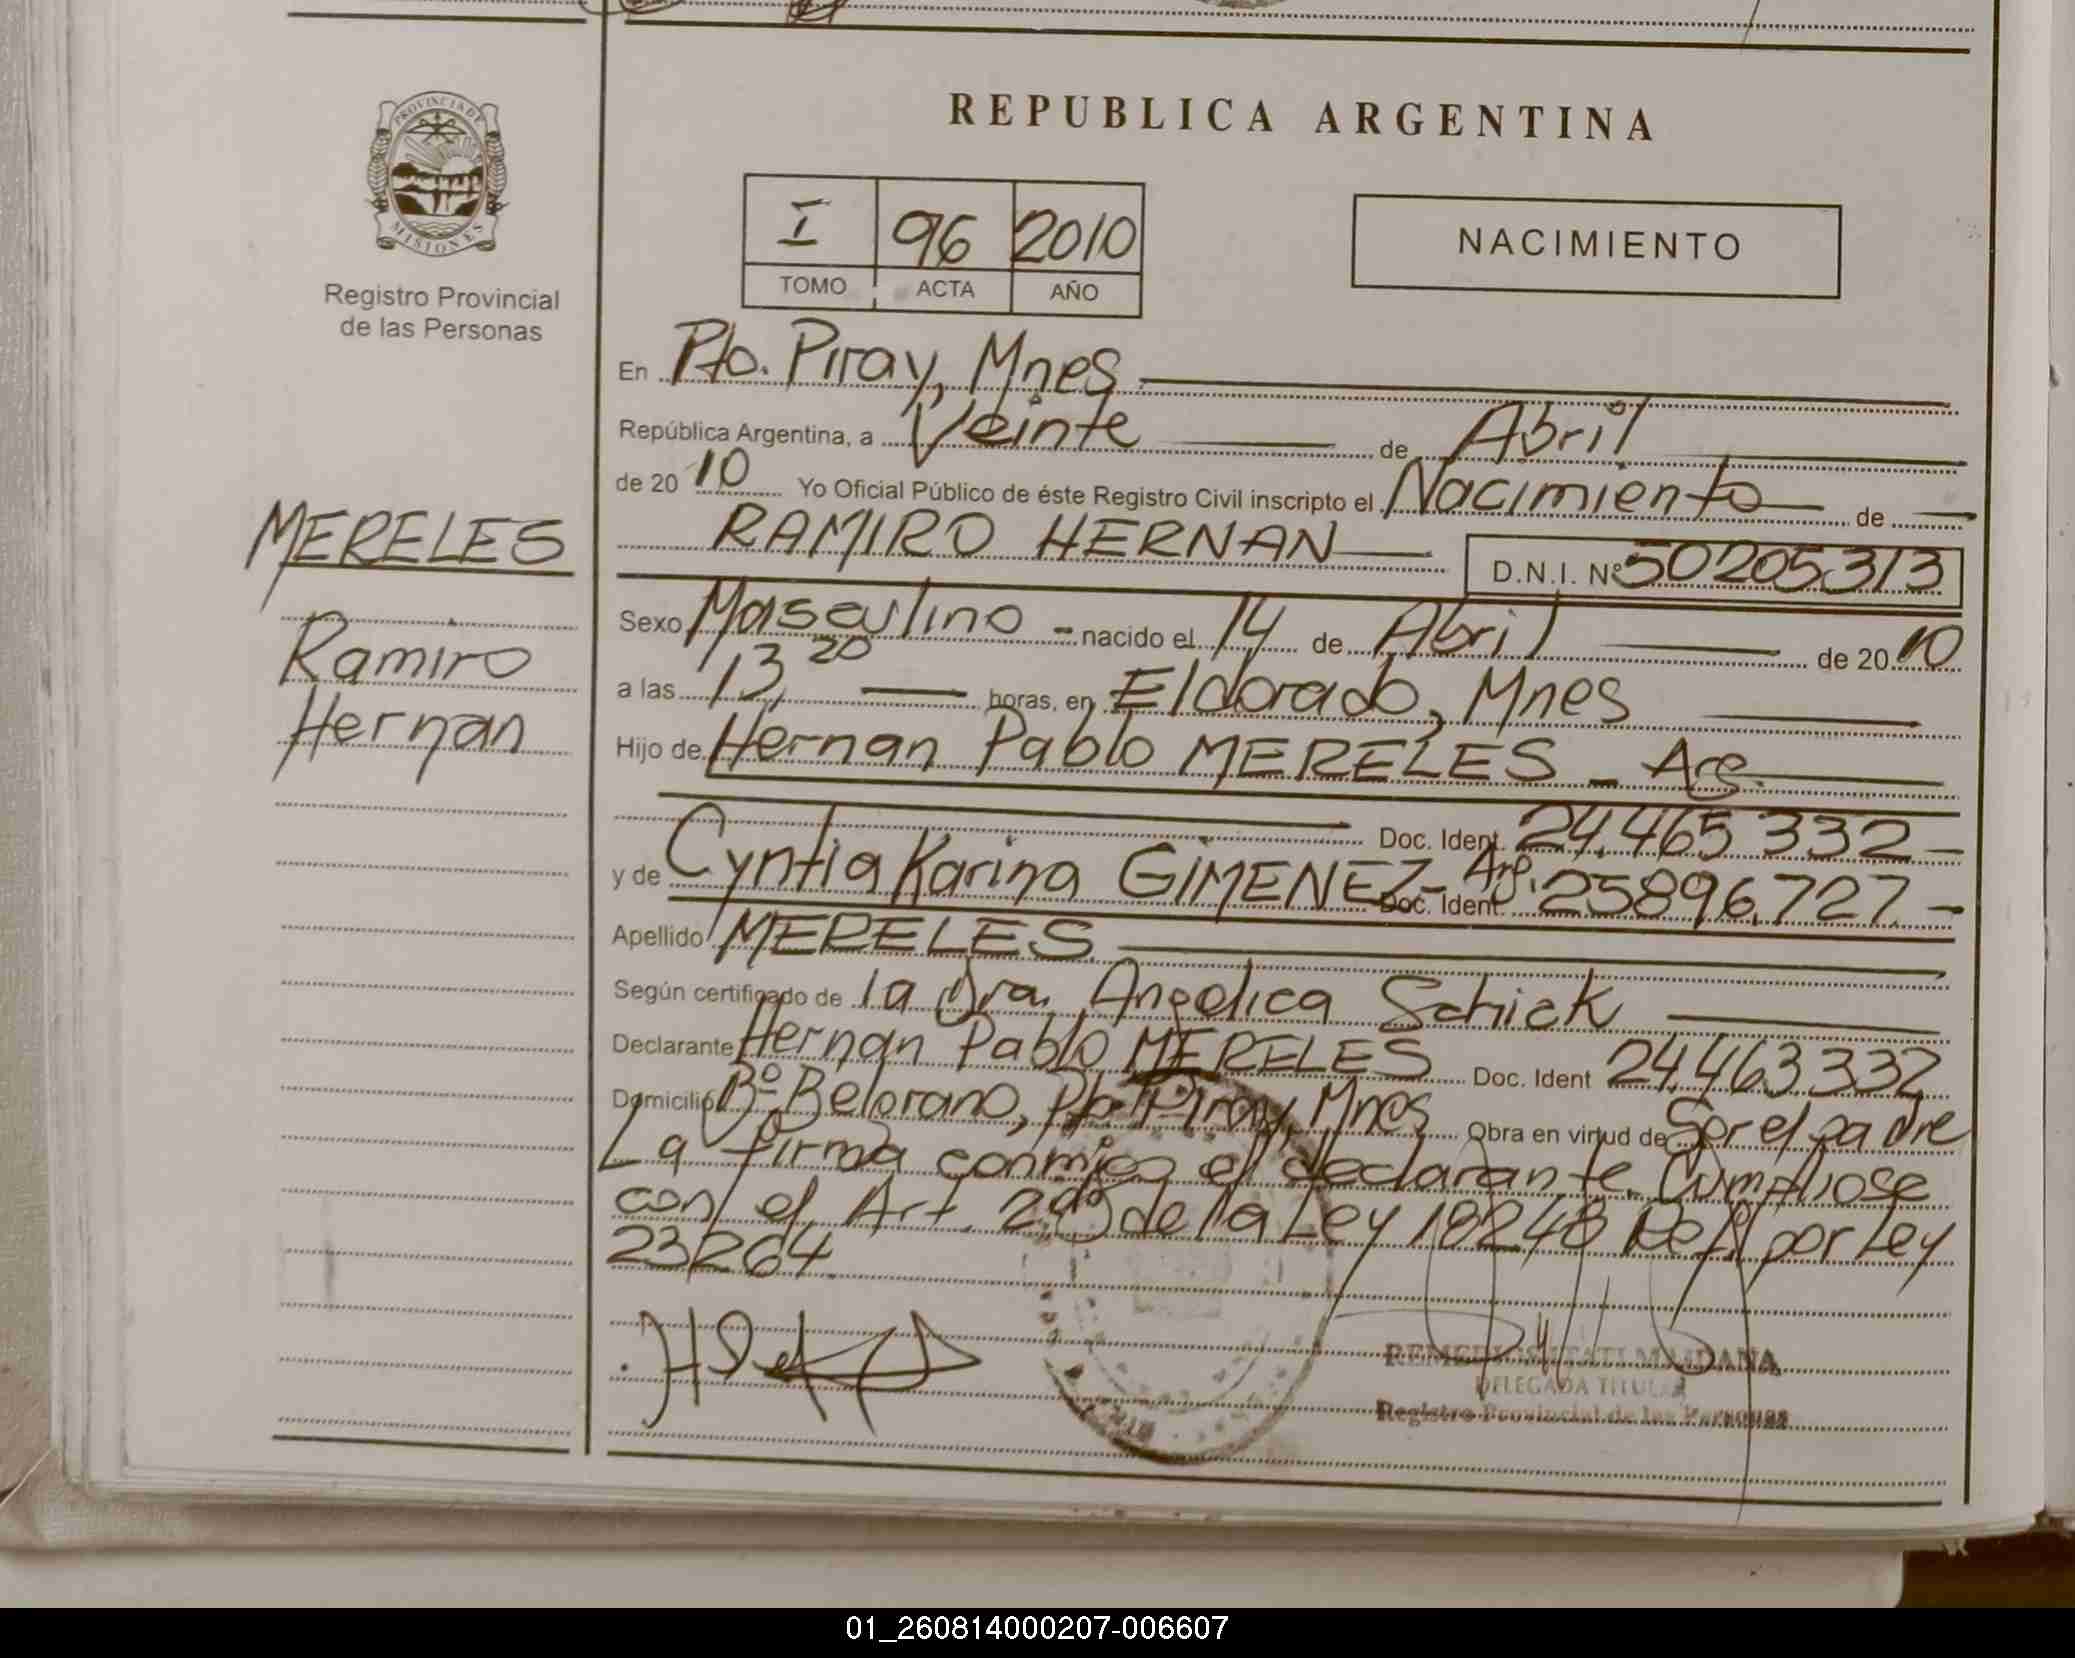 PROVINCIA DE
MISIONES
Registro Provincial
de las Personas
MERELES
Ramiro
Hernan
REPUBLICA ARGENTINA
I 96 2010
TOMO ACTA AÑO
NACIMIENTO
En Pto. Piray, Mnes.
República Argentina, a Veinte de Abril
de 20 10 Yo Oficial Público de éste Registro Civil inscripto el Nacimiento de
RAMIRO HERNAN D.N.I. Nº 50205313
Sexo Masculino - nacido el 14 de Abril de 20 10
a las 13,20 horas, en Eldorado, Mnes
Hijo de Hernan Pablo MERELES - Arg.
Doc. Ident. 24.465.332 -
y de Cyntia Karina GIMENEZ - Arg. Doc. Ident. 25896.727 -
Apellido MERELES
Según certificado de la Dra. Angelica Schick
Declarante Hernan Pablo MERELES Doc. Ident 24.463.332
Domicilio Bº Belgrano, Pto. Piray, Mnes Obra en virtud de Ser el padre
La firma conmigo el declarante. Cumpliose
con el Art. 2do de la Ley 18248 Ref. por Ley
23264
DELEGADA TITULAR
Registro Provincial de las Personas
01_260814000207-006607